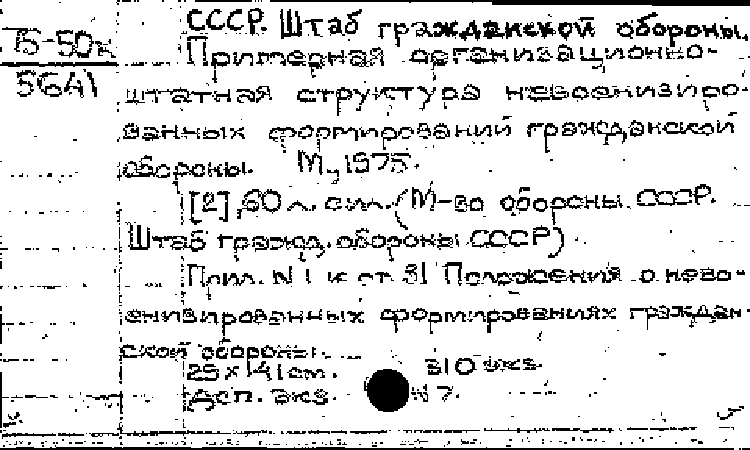 СССР. Штаб гражданской обороны.
Б-50к
Примерная организационно-
5641
штатная структура невоенизиро-
ванных формирований гражданской
обороны. М., 1975.
[2], 60 л. сил. (М-во обороны СССР.
Штаб гражд. обороны СССР)
Прил. N 1 к ст. 31 Положения о нево-
енизированных формированиях граждан-
ской обороны.
29 х 41 см. 310 экз.
Дсп. экз. N 7.